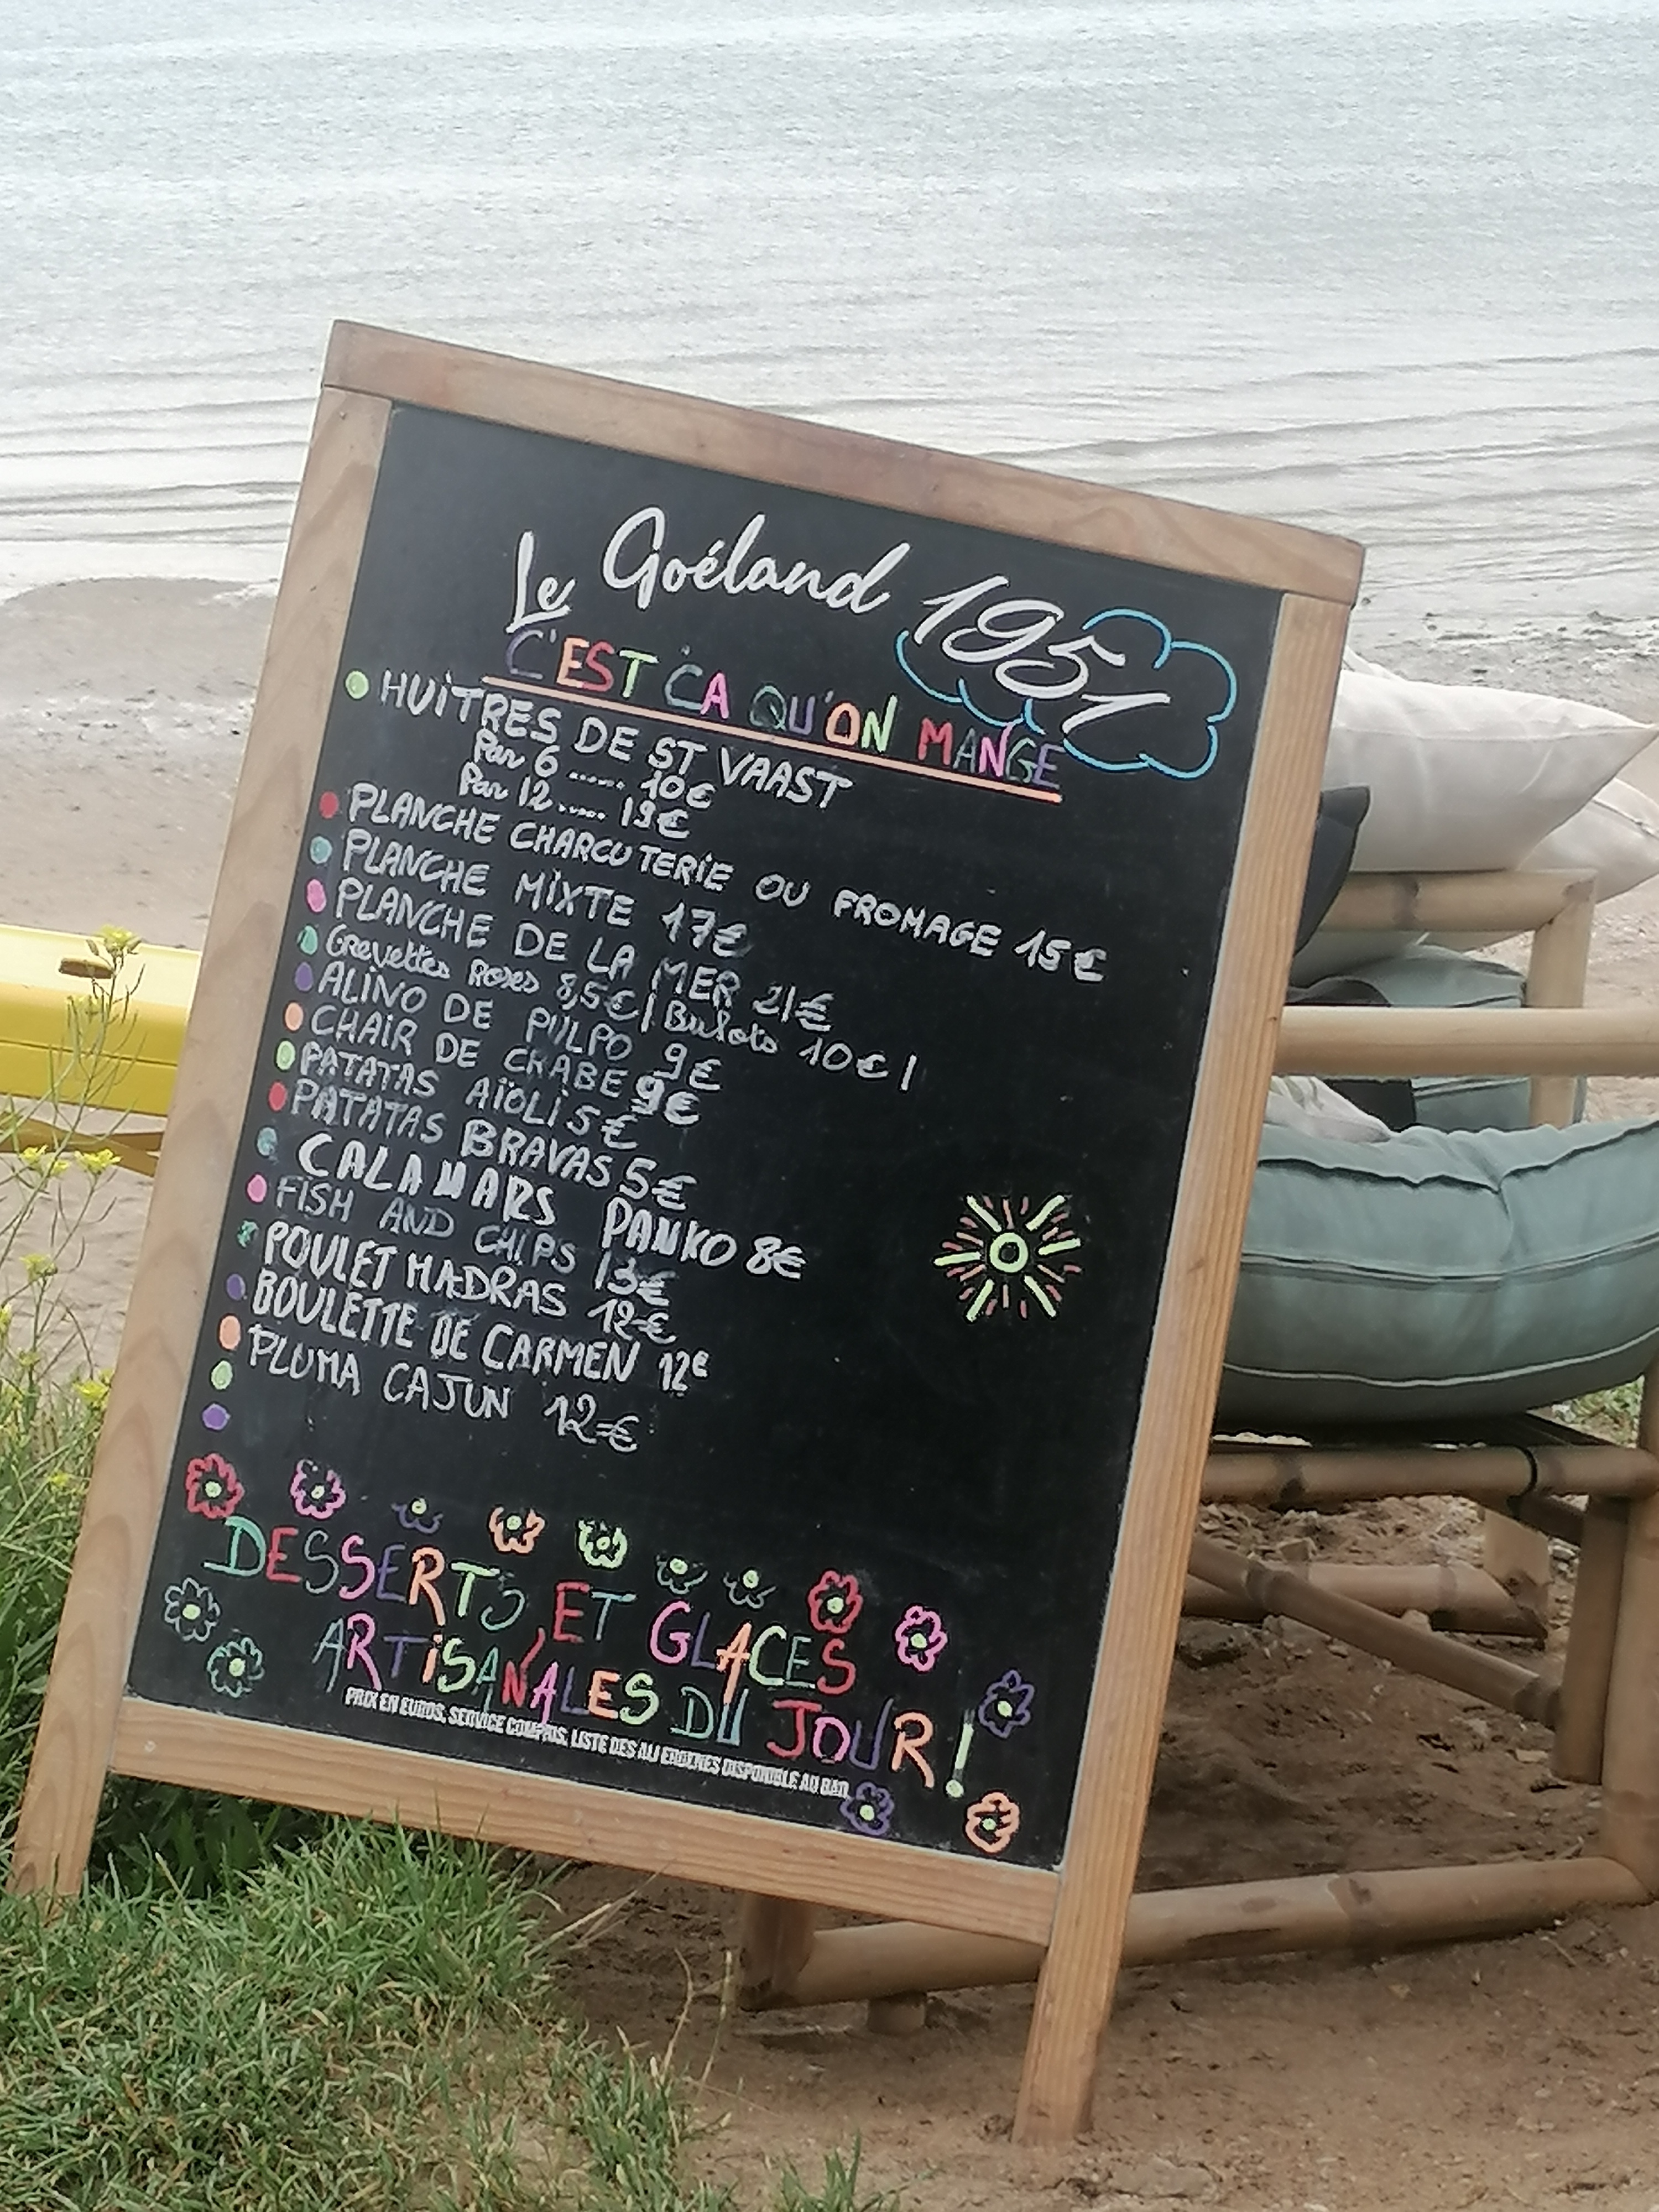 Le Goéland 1951
C'EST CA QU'ON MANGE
HUÎTRES DE ST VAAST
Par 6 ...... 10€
Par 12 ...... 19€
PLANCHE CHARCUTERIE OU FROMAGE 15€
PLANCHE MIXTE 17€
PLANCHE DE LA MER 21€
Crevettes Roses 8,5€ / Bulots 10€ /
ALINO DE PULPO 9€
CHAIR DE CRABE 9€
PATATAS AÏOLI 5€
PATATAS BRAVAS 5€
CALAMARS PANKO 8€
FISH AND CHIPS 13€
POULET MADRAS 12€
BOULETTE DE CARMEN 12€
PLUMA CAJUN 12€
DESSERTS ET GLACES
ARTISANALES DU JOUR !
PRIX EN EUROS, SERVICE COMPRIS, LISTE DES ALLERGENES DISPONIBLE AU BAR.